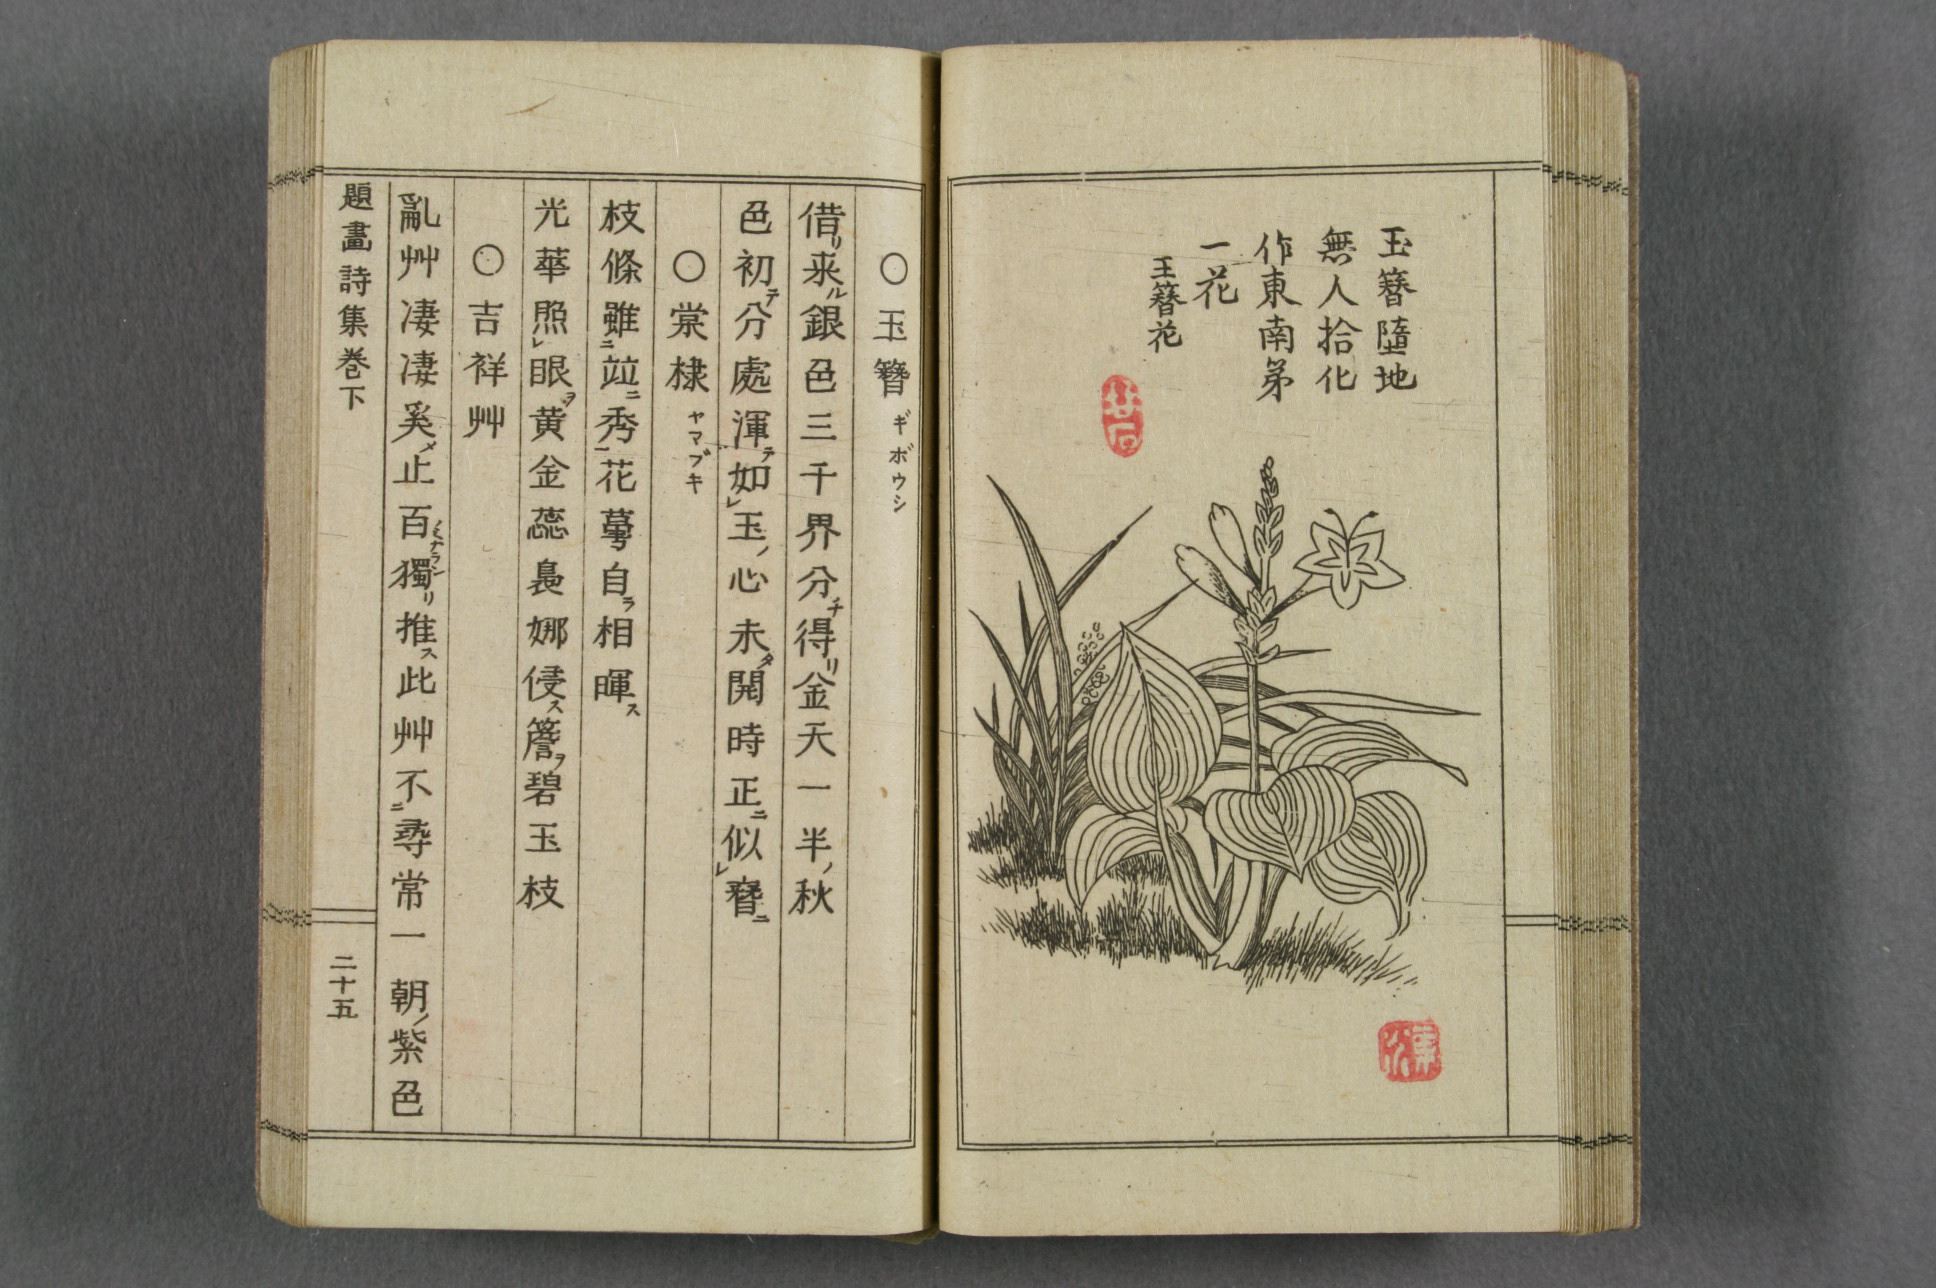 玉簪墮地
無人拾化
作東南第
一花
玉簪花
〇玉簪ギボウシ
借リ来ル銀色三千界分チ得リ金天一半ノ秋
色初テ分處渾テ如レ玉ノ心未タ開時正ニ似レ簪ニ
〇棠棣ヤマブキ
枝條雖ニ竝ニ秀一花蕚自ラ相暉ス
光華照レ眼ヲ黄金蕊裊娜侵ス簷ヲ碧玉枝
〇吉祥艸
亂艸凄凄奚メ止百ミナラン獨リ推ス此艸不ニ尋常一朝ノ紫色
題畫詩集巻下
二十五